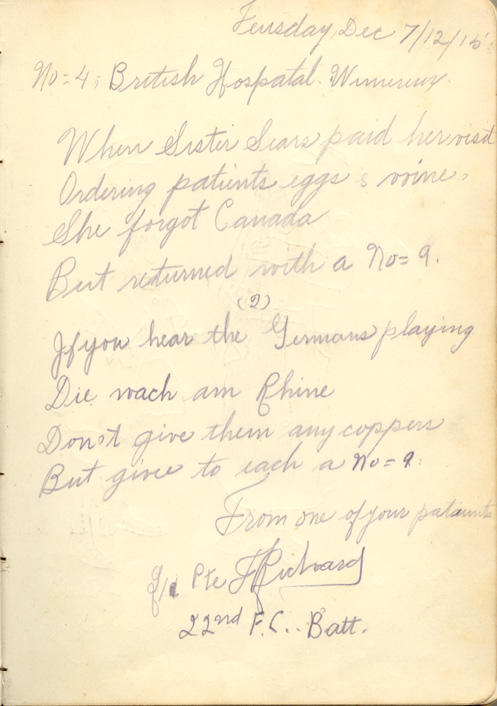 Teusday Dec 7/12/15
No = 4, British Hospatal. Wimereux.
When Sister Sears paid her visit
Ordering patients eggs & wine,
She forgot Canada
But returned with a No = 9.
(2)
If you hear the Germans playing
Die wach am Rhine
Don't give them any coppers
But give to each a No = 9.
From one of your pataunts
Pte F Richard
22nd F.C. Batt.